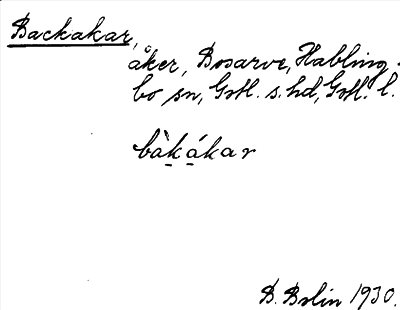 Backakar,
åker, Bosarve, Habling-
bo sn, Gotl. s. hd, Gotl. l.
bàkákar
B. Bolin 1930.